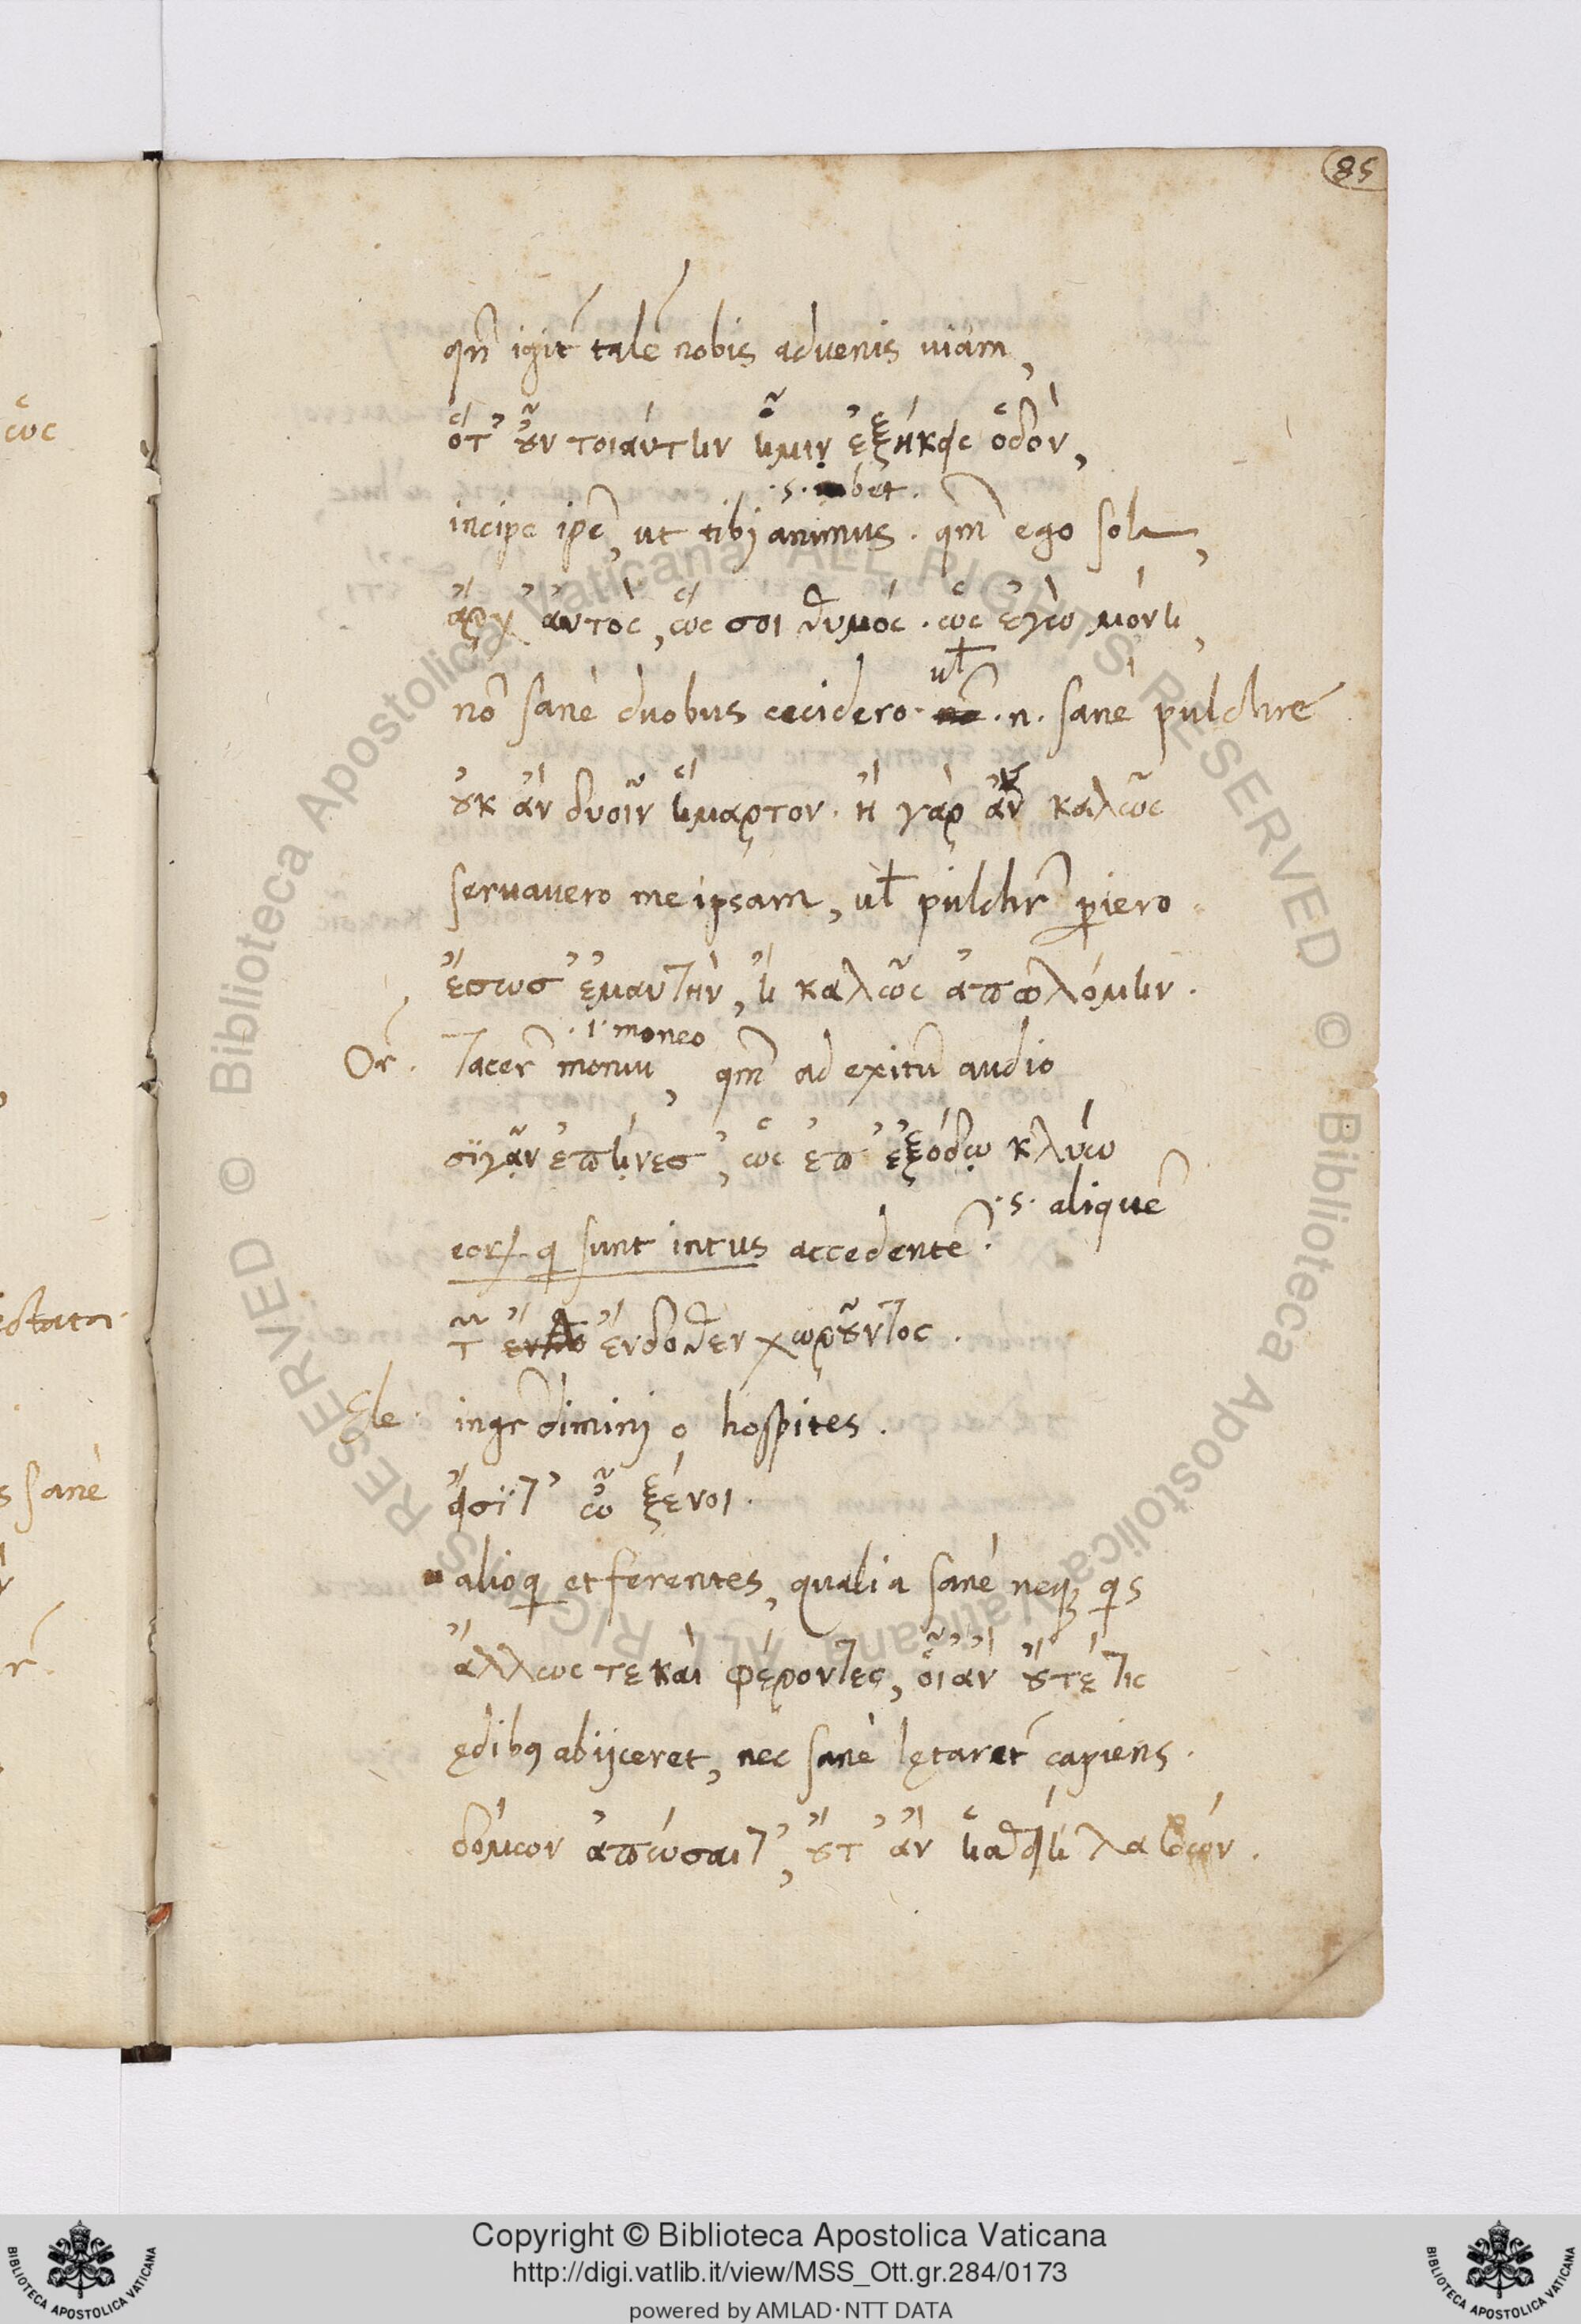 85
qñ igit̃ talẽ nobis aduenis uiam,
ὅτ' οὖν τοιαύτην ἡμῖν ἐξήκεις ὁδὸν,
.s. iubet.
incipe ip̃e, ut tibi animus. qm̃ ego sola,
ἄρχ' αὐτὸς, ὥς σοι θυμός. ὡς ἐγὼ μόνη,
uł
nõ sanè duobus cecidero. .n. sanè pulchre
οὐκ ἂν δυοῖν ἥμαρτον. ἢ γὰρ ἂν καλῶς
seruauero me ipsam, uł pulchr̃ periero
ἔσωσ' ἐμαυτὴν, ἢ καλῶς ἀπωλόμην.
.i. moneo
Or̃. Tacer̃ monui, qm̃ ad exitũ audio
σιγᾶν ἐπῄνεσ', ὡς ἐπ' ἐξόδῳ κλύω
.s. aliquẽ
eorꝝ q sunt intus accedentẽ.
τ͂ ἔνδοθεν χωροῦντος.
Ele. ingr̃dimini o hospites.
εἴσιτ' ὦ ξένοι.
alioqi et ferentes, qualia sanè neqꝫ qis
ἄλλως τε καὶ φέροντες, οἷ ἂν οὔτέ τις
ędibꝰ abijceret, nec sanè lętaret̃ capiens.
δόμων ἀπώσαιτ', οὔτ' ἂν ἡσθείη λαβών.
ὡς
s sanè
Copyright © Biblioteca Apostolica Vaticana
http://digi.vatlib.it/view/MSS_Ott.gr.284/0173
powered by AMLAD·NTT DATA
BIBLIOTECA APOSTOLICA VATICANA
BIBLIOTECA APOSTOLICA VATICANA
© Biblioteca Apostolica Vaticana ALL RIGHTS RESERVED © Biblioteca Apostolica Vaticana ALL RIGHTS RESERVED